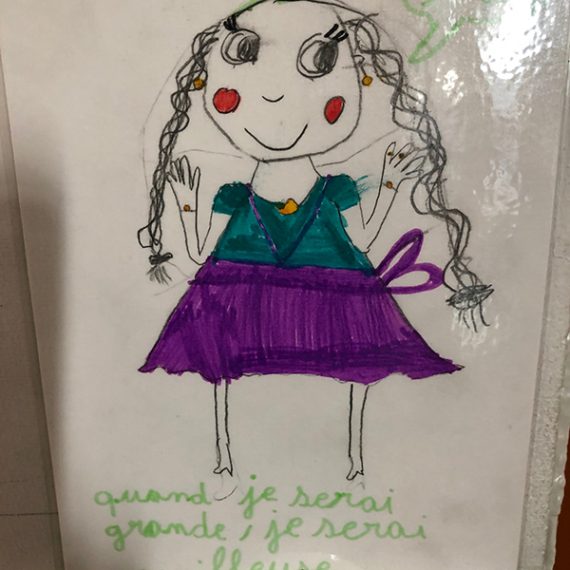 quand je serai
grande, je serai